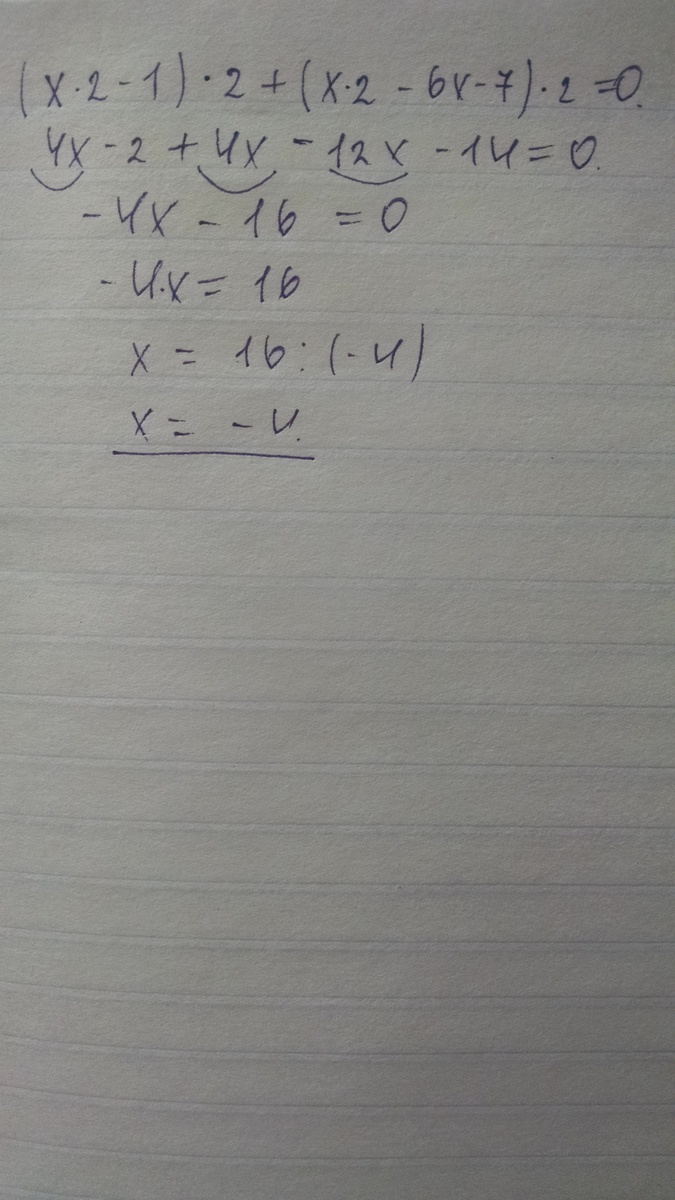 (x·2-1)·2+(x·2-6x-7)·2=0.
4x-2+4x-12x-14=0.
-4x-16=0
-4·x=16
x=16:(-4)
x=-4.